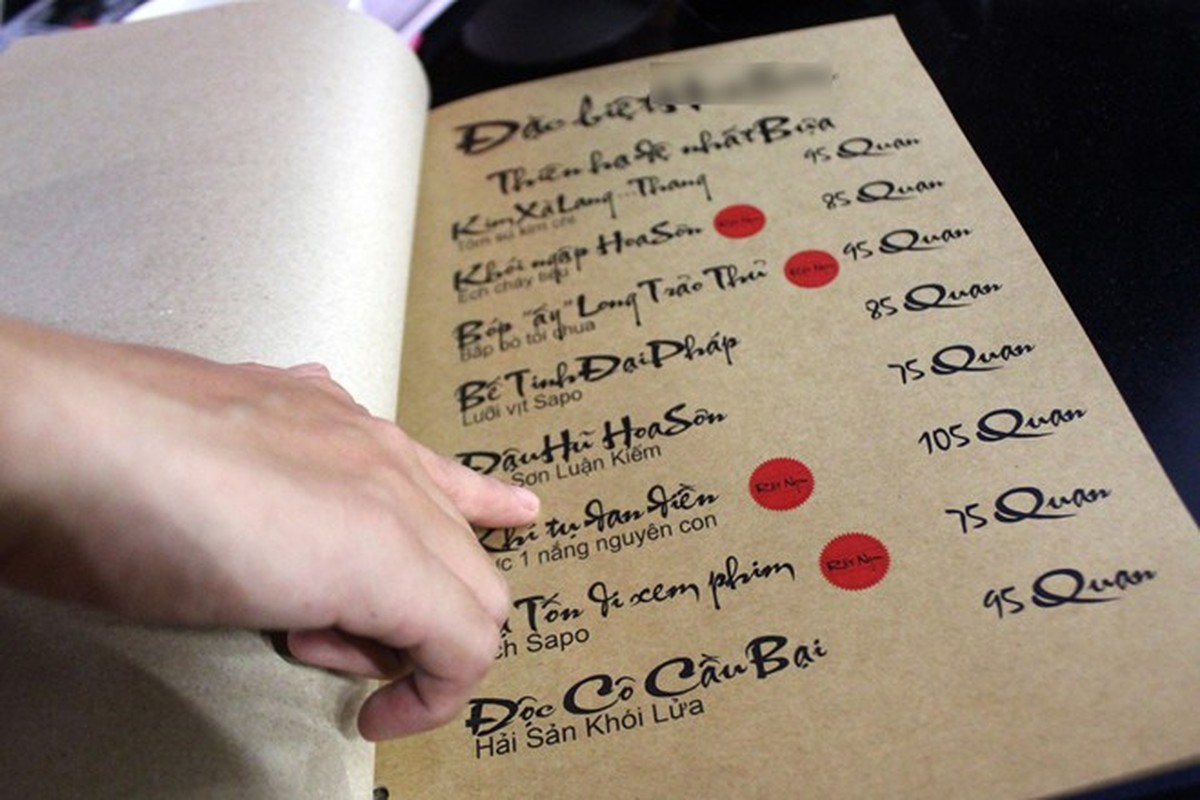 Đặc biệt
Thiên hạ đệ nhất Bựa
Kim Xà Lang...Thang 95 Quan
Tôm sú kim chi
Khói ngập Hoa Sơn Rất Ngon 85 Quan
Ếch cháy tiêu
Bóp "ấy" Long Trảo Thủ Rất Ngon 95 Quan
Bắp bò tỏi chua
Bế Tinh Đại Pháp 85 Quan
Lưỡi vịt Sapo
Đậu Hũ Hoa Sơn 75 Quan
Sơn Luận Kiếm
Khí tụ đan điền Rất Ngon 105 Quan
1 nắng nguyên con
Tốn đi xem phim Rất Ngon 75 Quan
Sapo
Độc Cô Cầu Bại 95 Quan
Hải Sản Khói Lửa